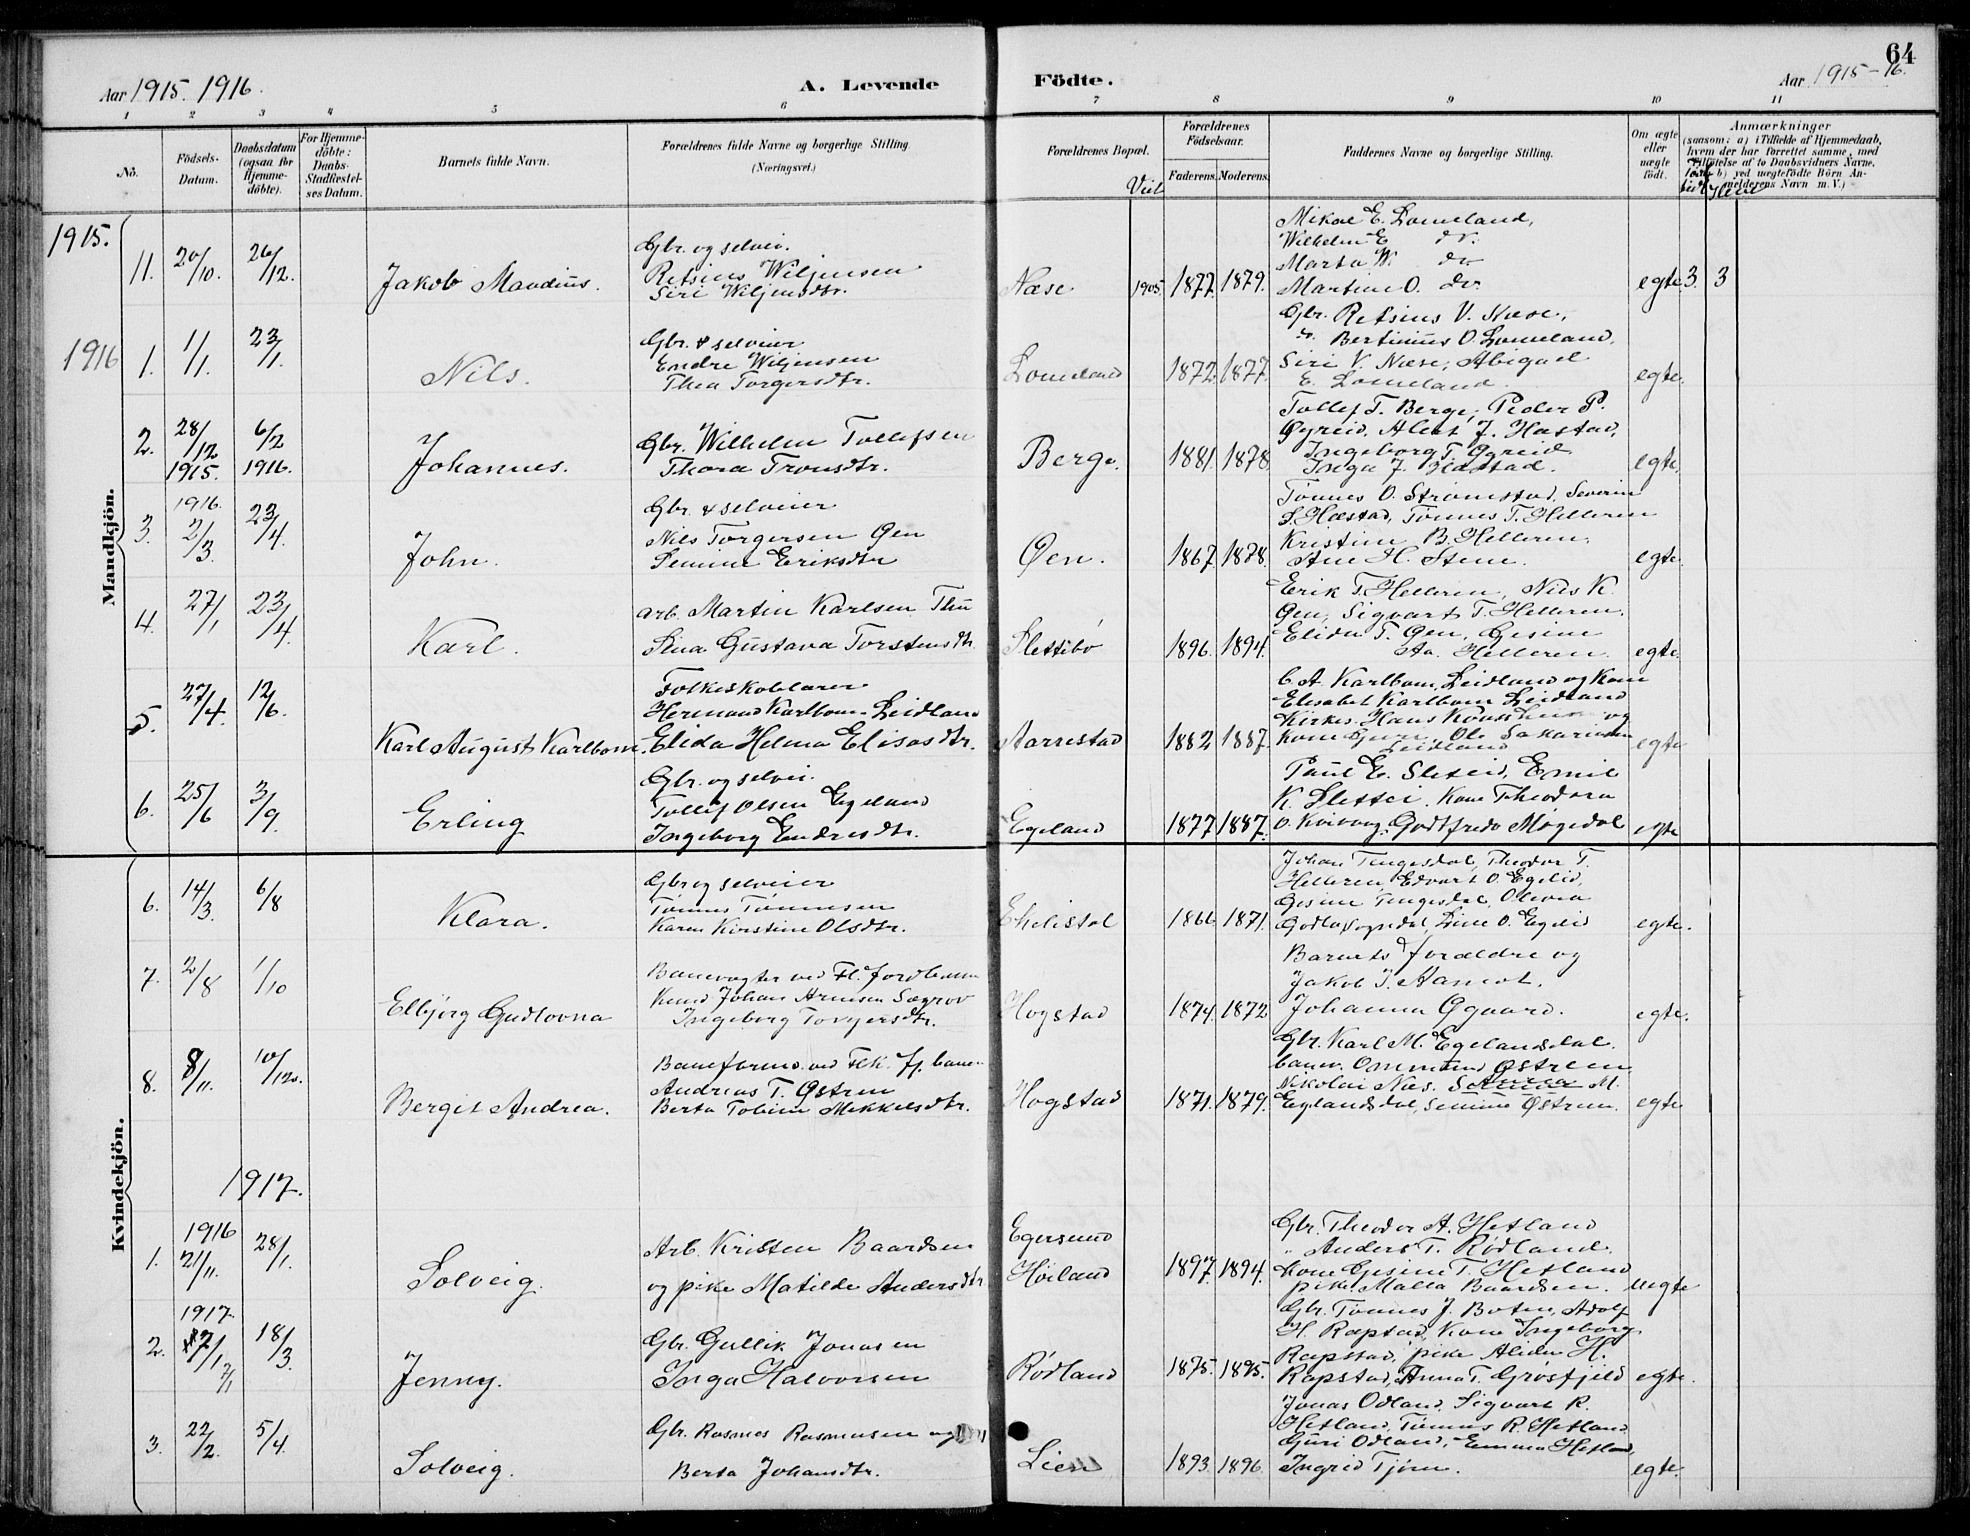 64
Aar 1915. 1916.
A. Levende
Födte.
Aar 1915-16.
1 2 3 4 5 6 7 8 9 10 11
No.
Födsels-
Datum.
Daabsdatum
(ogsaa for
Hjemme-
döbte).
For Hjemme-
döbte:
Daabs-
Stadfæstel-
ses Datum.
Barnets fulde Navn.
Forældrenes fulde Navne og borgerlige Stilling.
(Næringsvei.)
Forældrenes Bopæl.
Viet
Forældrenes
Födselsaar.
Faderens. Moderens.
Faddernes Navne og borgerlige Stilling.
Om ægte
eller
uægte
födt.
Anmærkninger
(saasom: a) i Tilfælde af Hjemmedaab,
hvem der har forrettet samme, med
Tilföielse af to Daabsvidners Navne.
b) ved uægtefödte Börn An-
melderens Navn m. V.)
Mandkjön.
1915.
11. 20/10. 26/12.
Jakob Maudius.
Gbr. og selvei.
Retsius Wiljemsen
Siri Wiljemsdtr.
Næse 1905. 1877. 1879.
Mikal E. Lomeland,
Wilhelm E do.
Marta W. do
Martine O. do.
egte 3. 3
1916
1. 1/1. 23/1.
Nils.
Gbr. & selveier
Endre Wiljemsen
Thea Torgersdtr.
Lomeland 1872. 1877.
Gbr. Retsius V. Næse,
" Bertinius O. Lomeland,
Siri V. Næse, Abigael
E. Lomeland.
egte.
2. 28/12 1915. 6/2 1916.
Johannes.
Gbr. Wilhelm Tollefsen
Thora Tronsdtr.
Berge. 1881. 1878
Tollef T. Berge, Peder P.
Øgreid, Alet J. Hæstad,
Ingeborg T. Øgreid
Inga J. Hæstad.
egte.
3. 1916. 2/3. 23/4.
John.
Gbr. & selveier
Nils Torgersen Øen
Semine Eriksdtr
Øen. 1867. 1878.
Tønnes O. Strømstad, Severin
S. Hæstad, Tønnes T. Helleren
Kristine B. Helleren,
Ane H. Stene.
egte.
4. 27/1 23/4.
Karl.
arb. Martin Karlsen Thu
Sina Gustava Torstensdtr
Slettebø 1896. 1894.
Erik T. Helleren, Nils K.
Øen, Sigvart T. Helleren,
Elida T. Øen, Gesine
Aa. Helleren.
egte.
5. 27/4. 12/6.
Karl August Karlbom
Folkeskolelærer
Hermann Karlbom-Leidland
Elida Helena Eliasdtr.
Aarrestad 1882 1887.
C. A. Karlbom, Leidland og Kone
Elisabet Karlbom Leidland
Kirkes. Hans og
Kone Ole Sakariasen
Leidland
egte
6. 25/6 3/9.
Erling
Gbr. og selvei.
Tollef Olsen Egeland
Ingeborg Endresdtr.
Egeland 1877 1887.
Paul E. Sleteid, Emil
K. Slettei, Kone Theodora
O. Godtfreda Mogedal
egte
Kvindekjön.
6. 14/3. 6/8
Klara.
Gbr og selveier
Tønnes Tønnesen
Karen Kirstine Olsdtr.
Ekelistøl 1866 1871.
Johan Tengesdal, Theodor T.
Helleren, Edvart O. Egelid,
Gesine Tengesdal, Olevia
Godla, Sogndal, Line O. Egelid
egte.
7. 2/8 1/10
Elbjørg Gudlovna
Banevogter ved Fl. Jordbanen
Knud Johan Arnesen Søgrov
Ingeborg Torgersdtr.
Hogstad 1874. 1872
Barnets forældre og
Jakob J. Aamot.
Johanna Øgaard.
egte.
8. 8/11. 10/12.
Bergit Andrea.
Baneform. ved Flk. Jj. banen
Andreas T. Østrem
Berta Tobine Mikkelsdtr.
Hogstad 1871. 1879.
Gbr. Karl M. Egelandsdal.
banev. Ommund Østrem
Nikolai Næs. M.
Egelandsdal, Semine Østrem.
egte
1917.
1. 1916 21/11. 28/1.
Solveig.
Arb. Kristen Baardsen
og pike Matilde Andersdtr
Egersund
Høiland 1897. 1894.
Gbr. Theodor A. Hetland
" Anders T. Rødland.
Kone Gesine T. Hetland
pike Malla Baardsen.
uegte
2. 1917. 7/1 18/3.
Jenny.
Gbr. Gullik Jonasen
Inga Halvorsen
Rødland 1875. 1895.
Gbr. Tønnes J. Boten, Adolf
H. Rapstad, Kone Ingeborg
Rapstad, pike Aliden H.
Rapstad, Anna T. Grøsfjeld
egte.
3. 22/2. 5/4.
Solveig.
Gbr. Rasmus Rasmussen og
Berta Johansdtr.
Lien 1893. 1896.
Jonas Odland, Sigvart R.
Hetland, Tønnes R. Hetland
Guri Odland, Emma Hetland,
Ingrid Tjørn.
egte.